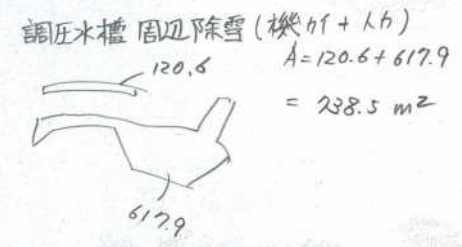 調圧水槽 周辺除雪(機カイ+人力)
120.6
A=120.6+617.9
= 738.5 m²
617.9